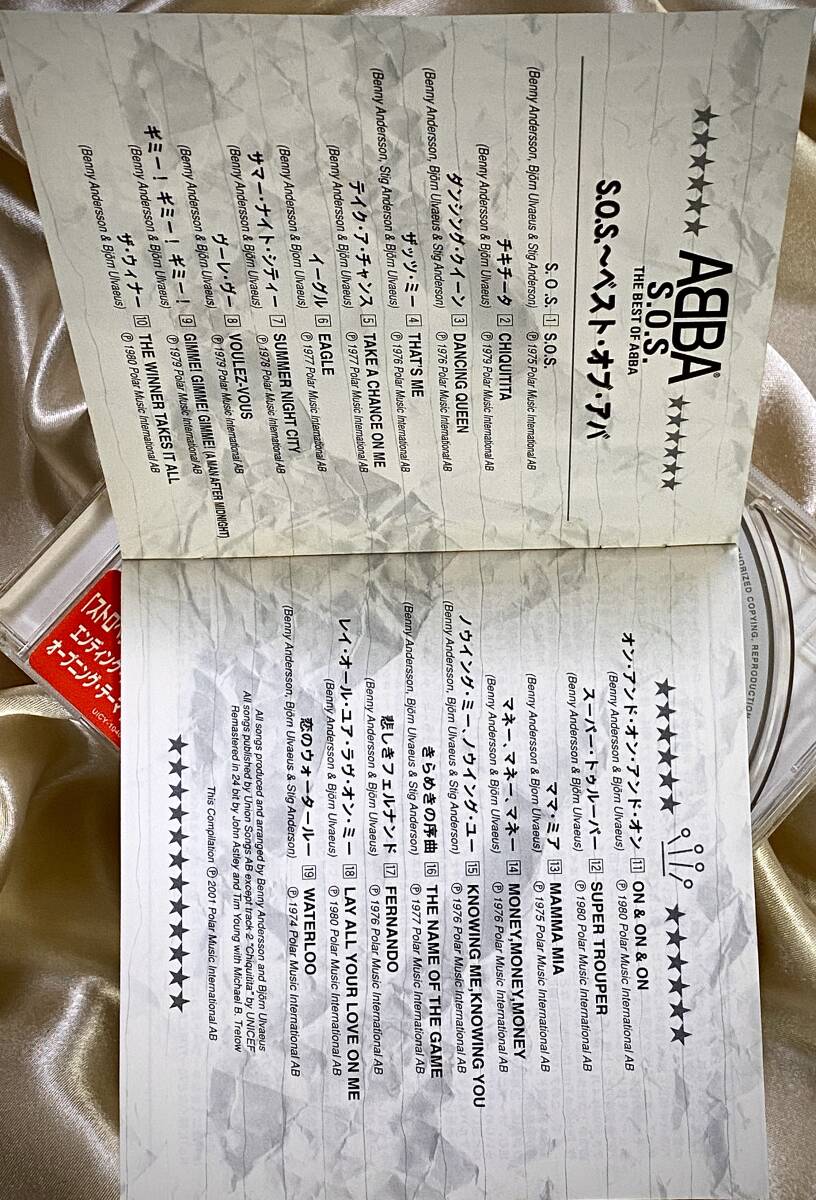 ABBA®
S.O.S.
THE BEST OF ABBA
S.O.S.～ベスト・オブ・アバ
S. O. S. 1 S.O.S.
(Benny Andersson, Björn Ulvaeus & Stig Anderson) ℗ 1975 Polar Music International AB
チキチータ 2 CHIQUITITA
(Benny Andersson & Björn Ulvaeus) ℗ 1979 Polar Music International AB
ダンシング・クイーン 3 DANCING QUEEN
(Benny Andersson, Stig Anderson & Björn Ulvaeus) ℗ 1976 Polar Music International AB
ザッツ・ミー 4 THAT'S ME
(Benny Andersson, Stig Anderson & Björn Ulvaeus) ℗ 1976 Polar Music International AB
テイク・ア・チャンス 5 TAKE A CHANCE ON ME
(Benny Andersson & Björn Ulvaeus) ℗ 1977 Polar Music International AB
イーグル 6 EAGLE
(Benny Andersson & Björn Ulvaeus) ℗ 1977 Polar Music International AB
サマー・ナイト・シティー 7 SUMMER NIGHT CITY
(Benny Andersson & Björn Ulvaeus) ℗ 1978 Polar Music International AB
ヴーレ・ヴー 8 VOULEZ-VOUS
(Benny Andersson & Björn Ulvaeus) ℗ 1979 Polar Music International AB
ギミー！ギミー！ギミー！ 9 GIMME! GIMME! GIMME! (A MAN AFTER MIDNIGHT)
(Benny Andersson & Björn Ulvaeus) ℗ 1979 Polar Music International AB
ザ・ウィナー 10 THE WINNER TAKES IT ALL
(Benny Andersson & Björn Ulvaeus) ℗ 1980 Polar Music International AB
オン・アンド・オン・アンド・オン 11 ON & ON & ON
(Benny Andersson & Björn Ulvaeus) ℗ 1980 Polar Music International AB
スーパー・トゥルーパー 12 SUPER TROUPER
(Benny Andersson & Björn Ulvaeus) ℗ 1980 Polar Music International AB
ママ・ミア 13 MAMMA MIA
(Benny Andersson, Björn Ulvaeus & Stig Anderson) ℗ 1975 Polar Music International AB
マネー、マネー、マネー 14 MONEY,MONEY,MONEY
(Benny Andersson & Björn Ulvaeus) ℗ 1976 Polar Music International AB
ノウイング・ミー、ノウイング・ユー 15 KNOWING ME,KNOWING YOU
(Benny Andersson, Björn Ulvaeus & Stig Anderson) ℗ 1976 Polar Music International AB
きらめきの序曲 16 THE NAME OF THE GAME
(Benny Andersson, Björn Ulvaeus & Stig Anderson) ℗ 1977 Polar Music International AB
悲しきフェルナンド 17 FERNANDO
(Benny Andersson & Björn Ulvaeus) ℗ 1976 Polar Music International AB
レイ・オール・ユア・ラヴ・オン・ミー 18 LAY ALL YOUR LOVE ON ME
(Benny Andersson & Björn Ulvaeus) ℗ 1980 Polar Music International AB
恋のウォータールー 19 WATERLOO
(Benny Andersson, Björn Ulvaeus & Stig Anderson) ℗ 1974 Polar Music International AB
All songs produced and arranged by Benny Andersson and Björn Ulvaeus
All songs published by Union Songs AB except track 2 'Chiquitita' by UNICEF
Remastered in 24 bit by John Astley and Tim Young with Michael B. Tretow
This Compilation ℗ 2001 Polar Music International AB
COPYING, REPRODUCTION
エンディング
オープニング・テーマ